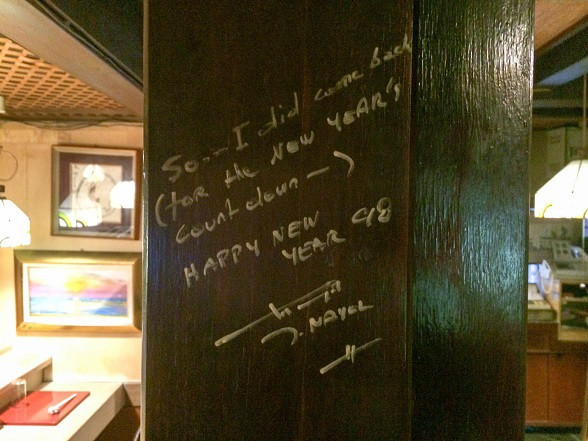 So... I did come back
(for the NEW YEAR's
countdown — )
HAPPY NEW
YEAR 98
J. NAYEL